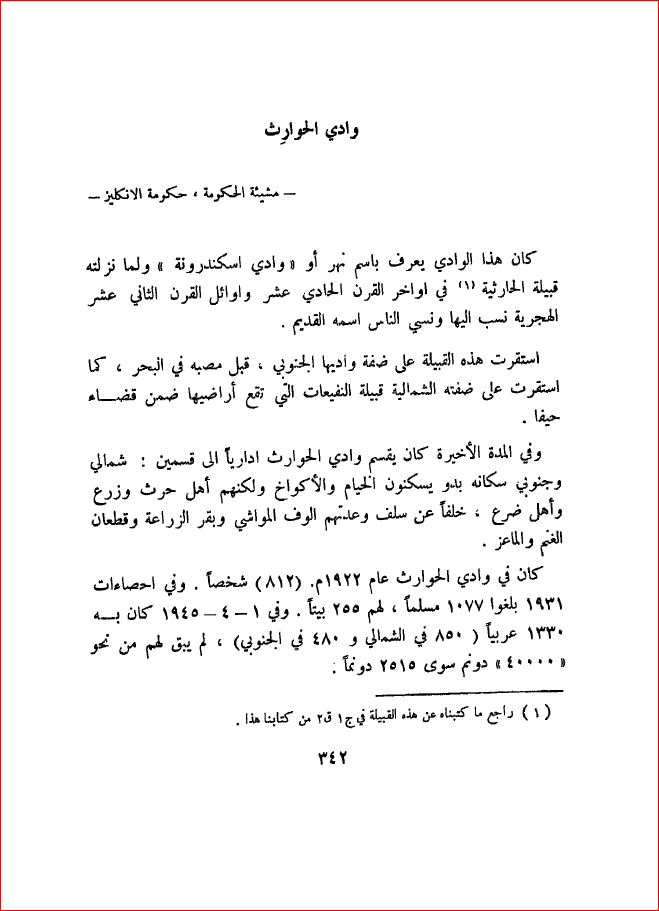 وادي الحوارِث
– مشيئة الحكومة ، حكومة الانكليز –
كان هذا الوادي يعرف باسم نهر أو « وادي اسكندرونة » ولما نزلته
قبيلة الحارثية (١) في اواخر القرن الحادي عشر واوائل القرن الثاني عشر
الهجرية نسب اليها ونسي الناس اسمه القديم .
استقرت هذه القبيلة على ضفة واديها الجنوبي ، قبل مصبه في البحر ، كما
استقرت على ضفته الشمالية قبيلة النفيعات التّي تقع أراضيها ضمن قضـــاء
حيفا .
وفي المدة الأخيرة كان يقسم وادي الحوارث ادارياً الى قسمين : شمالي
وجنوبي سكانه بدو يسكنون الخيام والأكواخ ولكنهم أهل حرث وزرع
وأهل ضرع ، خلفاً عن سلف وعدتهم الوف المواشي وبقر الزراعة وقطعان
الغنم والماعز .
كان في وادي الحوارث عام ١٩٢٢م. (٨١٢) شخصاً . وفي احصاءات
١٩٣١ بلغوا ١٠٧٧ مسلماً ، لهم ٢٥٥ بيتاً . وفي ١ – ٤ – ١٩٤٥ كان بــه
١٣٣٠ عربياً ( ٨٥٠ في الشمالي و ٤٨٠ في الجنوبي) ، لم يبق لهم من نحو
« ٤٠٠٠٠ » دونم سوى ٢٥١٥ دونماً .
( ١ ) راجع ما كتبناه عن هذه القبيلة في ج١ ق٢ من كتابنا هذا .
٣٤٢